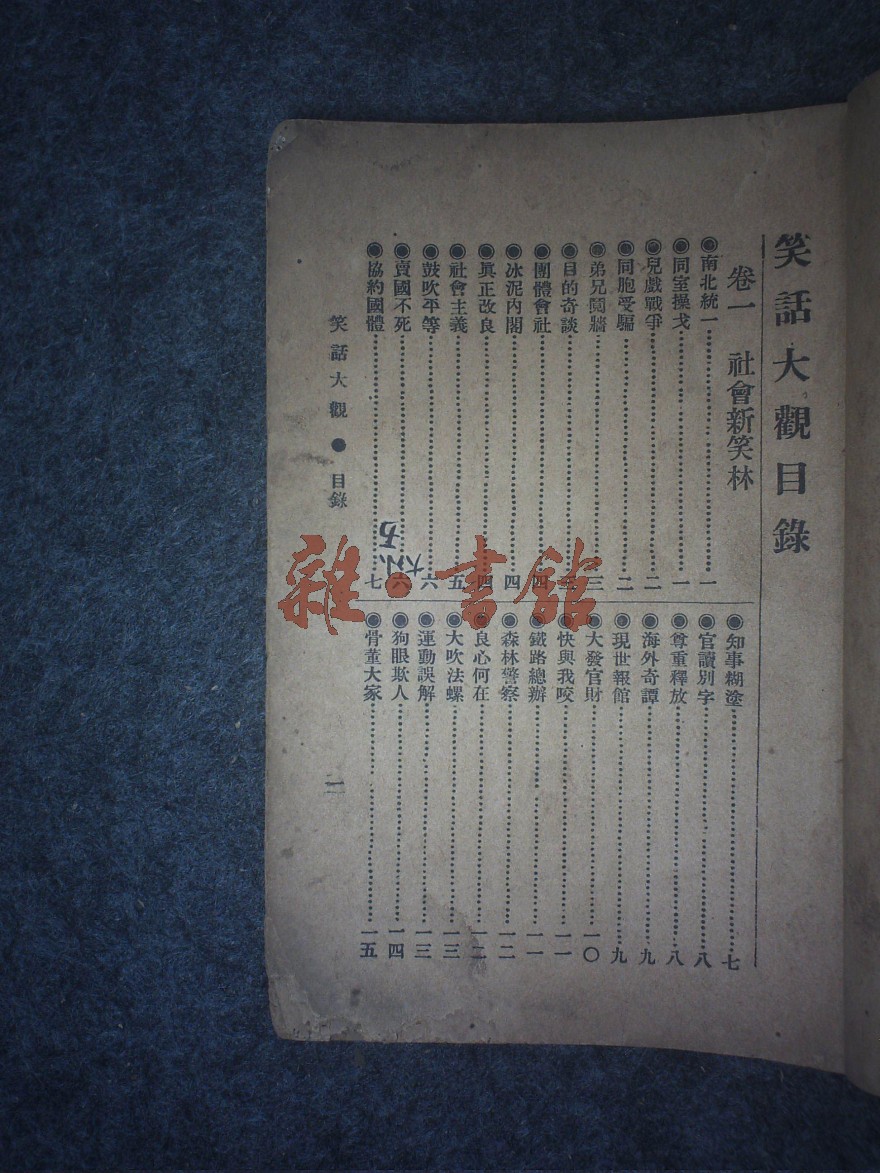 笑話大觀目錄
卷一 社會新笑林
◉南北統一……一
◉同室操戈……一
◉兒戲戰爭……二
◉同胞受騙……二
◉弟兄鬩牆……三
◉目的奇談……三
◉團體會社……四
◉冰泥內閣……四
◉眞正改良……四
◉社會主義……五
◉鼓吹平等……六
◉賣國不死……六
◉協約國體……七
◉知事糊塗……七
◉官讀別字……八
◉尊重釋放……八
◉海外奇譚……九
◉現世報館……九
◉大發官財……一〇
◉快與我咬……一一
◉鐵路總辦……一一
◉森林警察……一二
◉良心何在……一二
◉大吹法螺……一三
◉運動誤解……一三
◉狗眼欺人……一四
◉骨董大家……一五
笑話大觀 ● 目錄
雜·書館